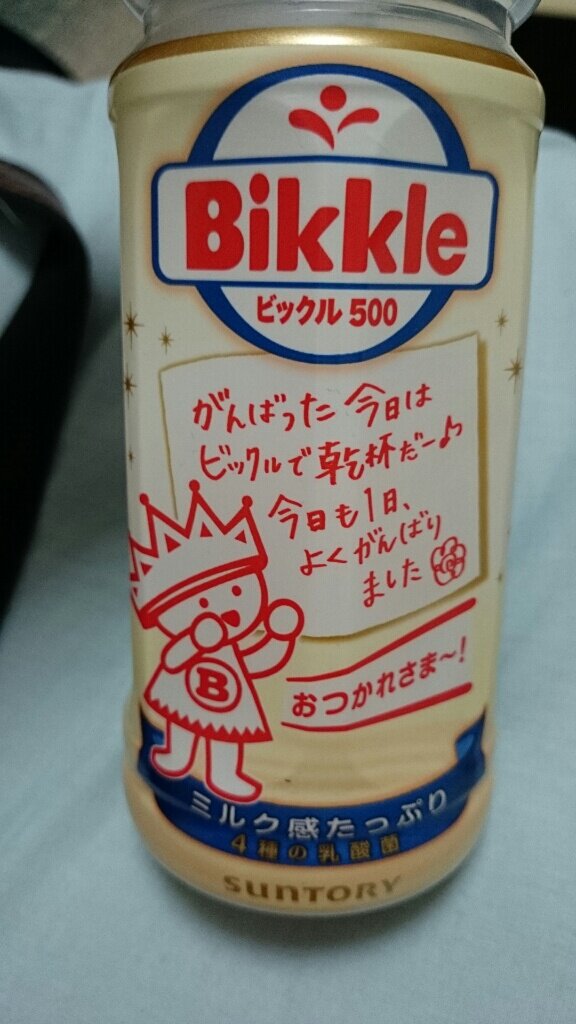 Bikkle
ビックル 500
がんばった 今日は
ビックルで 乾杯だー♪
今日も1日、
よくがんばり
ました
おつかれさま〜!
B
ミルク感たっぷり
4種の乳酸菌
SUNTORY